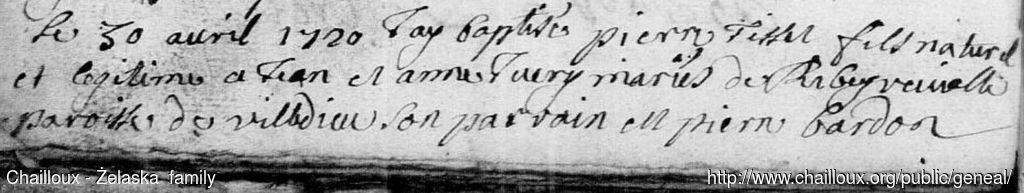 Le 30 avril 1720 Jay baptisé pierre Tisset fils naturel
et legitime a Jean et anne Tuery mariés de Ribeyrevieille
paroisse de villedieu son parrain est pierre bardon
Chailloux - Żelaska family
http://www.chailloux.org/public/geneal/